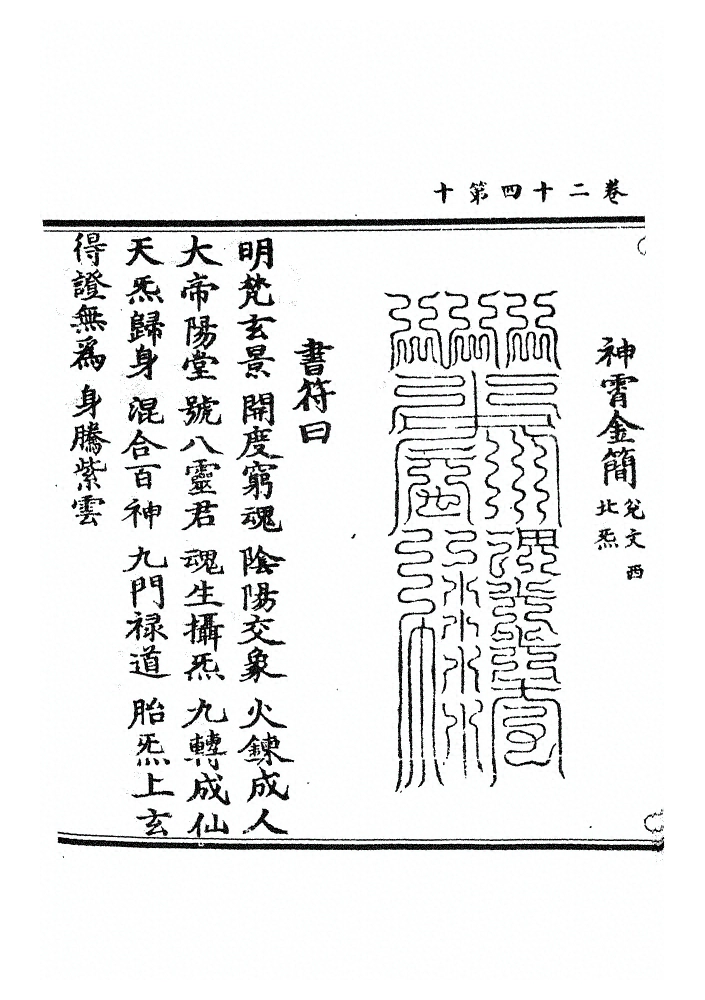 卷二十四第十
神霄金簡 兌文西北炁
書符曰
明梵玄景 開度窮魂 陰陽交象 火鍊成人
大帝陽堂 號八靈君 魂生攝炁 九轉成仙
天炁歸身 混合百神 九門祿道 胎炁上玄
得證無爲 身騰紫雲